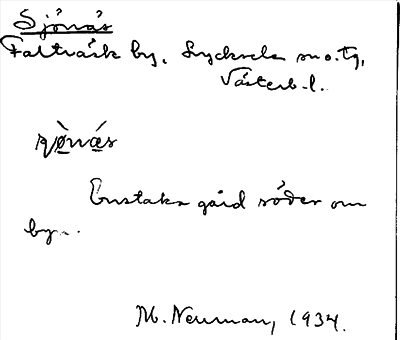 Sjönäs
Falträsk by, Lycksele sn o. tg,
Västerb. l.
Enstaka gård söder om
byn.
M. Neuman, 1934.